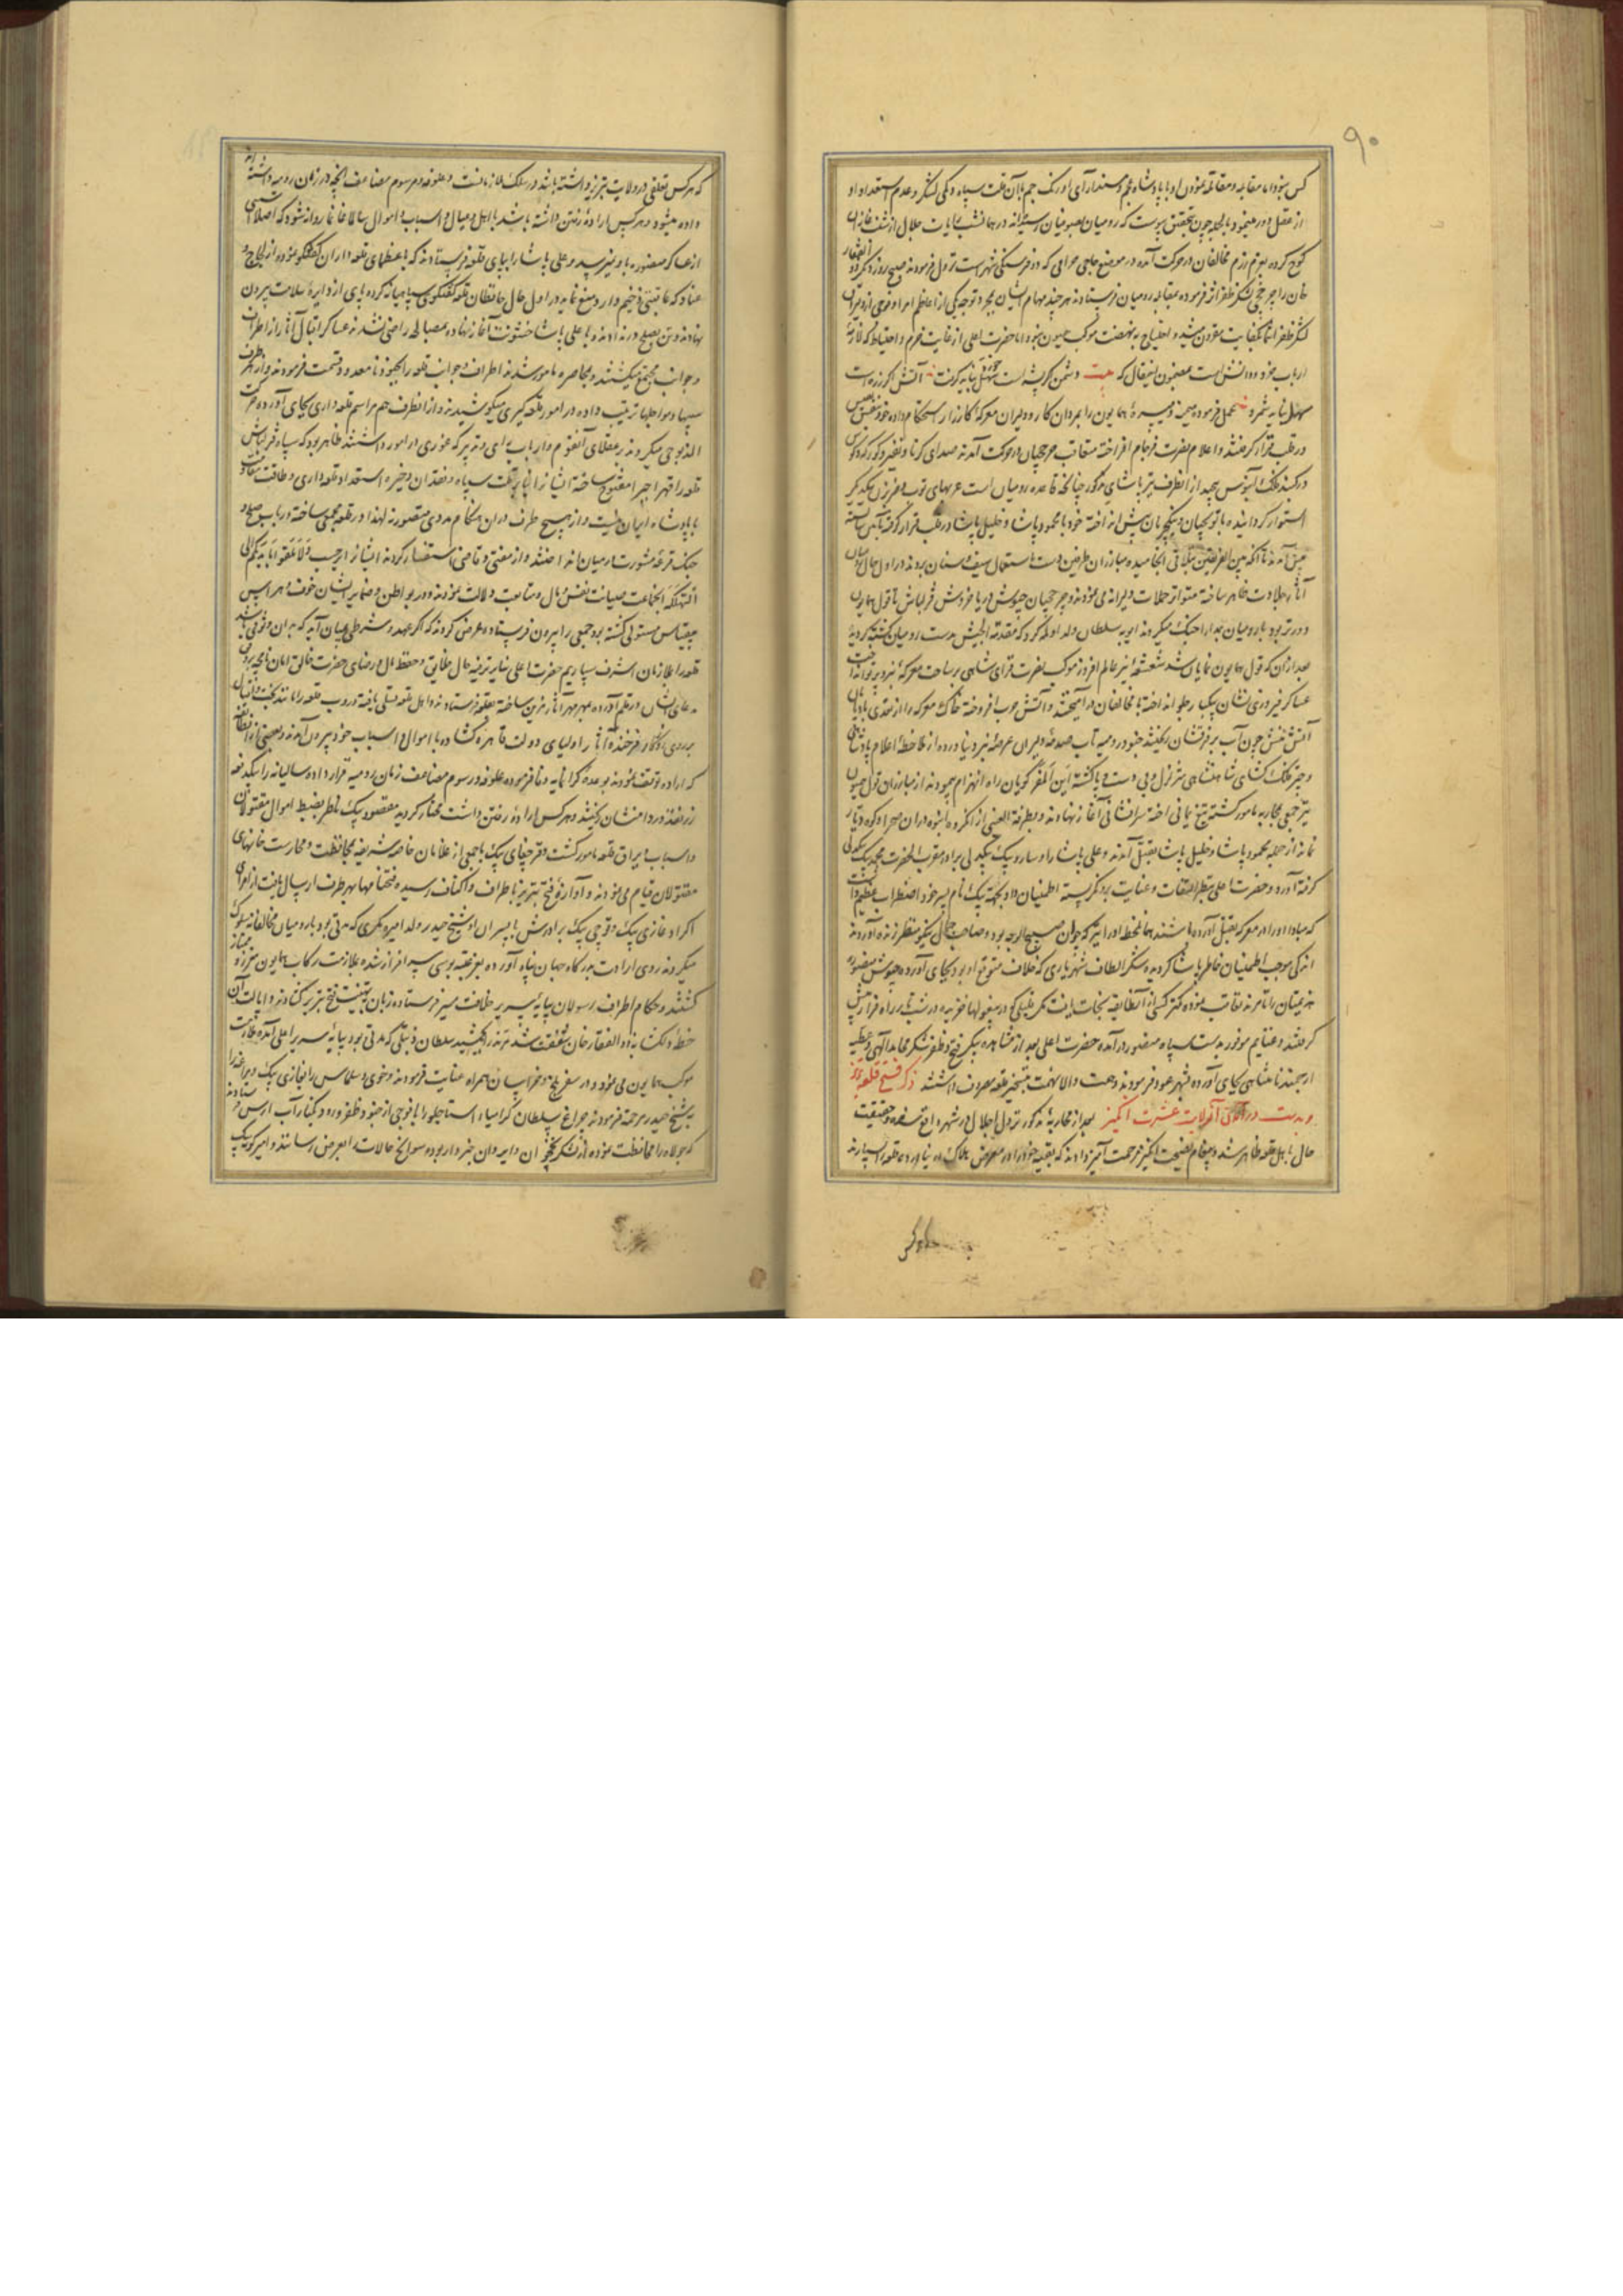 ۹۰
کس بنود اما مقابله و مقاتله نمودن او با پادشاه عجم و مسندآرای اورنک جم با آن قلت سپاه و کمی لشکر و عدم استعداد او
از عقل دور مینمود بالجمله چون بتحقیق پیوست که رومیان بصوفیان رسیده‌اند در همان شب رایات جلال از
کوچ کرده بعزم رزم مخالفان در حرکت آمده در موضع حاجی حرامی که دو فرسنکی شهر است نزول فرمودند صبح روز دیکر ذوالفقار
خان را چرخچی لشکر ظفر اثر فرموده بمقابله رومیان فرستادند هر چند مهام ایشان بمجرد توجه یکی از اعاظم امرا و فوجی از دلیران
لشکر ظفر انتما بکفایت مقرون میشد و احتیاج به نهضت موکب همیون نبود اما حضرت اعلی از غایت حزم و احتیاط که لازمهٔ
ارباب خرد و دانش است بمضمون این مقال که بیت دشمن اکر پشه است سهل نباید کرفت آتش اکر ذره است
سهل نباید شمرد عمل فرموده میمنه و میسرهٔ همایون را بمردان کار و دلیران معرکهٔ کارزار استحکام داده خود بنفس نفیس
در قلب قرار کرفتند و اعلام نصرت فرجام افراخته متعاقب چرخچیان در حرکت آمدند صدای کرنا و نفیر و کورکه و کوس
در کنبد فلک آبنوس پیچید از انطرف نیز پاشای مذکور چنانچه قاعده رومیان است عربهای توپ و ضربزن بیکدیکر
استوار کردانیده با توپچیان و ینکچریان پیش انداخته خود با محمود پاشا و خلیل پاشا در قلب قرار کرفته
پیش آمدند تا آنکه بین الفریقین بتلاقی انجامیده مبارزان طرفین دست باستعمال سیف و سنان بردند در اول حال رومیان
آثار جلادت ظاهر ساخته متواتر حملات دلیرانه می‌نمودند و چرخچیان جیوش دریا خروش قزلباش تا قول همایون
دورتر بود با رومیان بمدارا جنک میکردند ایوب سلطان ولد اولمه کرد که مقدمة الجیش بدست رومیان کشته کردید
بعد از ان که قول همایون نمایان شد شعشعهٔ نیر عالم افروز موکب نصرت قرای شاهی بر ساحت معرکهٔ نبرد پرتو انداخت
عساکر فیروزی نشان بیکبار جلو انداخته با مخالفان در آمیختند و آتش حرب افروخته خاک معرکه را از تندی باد پایان
آتش منش چون آب بر فرقشان ریختند جنود رومیه تاب صدمهٔ دلیران عرصهٔ نبرد نیاورده از ملاحظهٔ اعلام پادشاهی
و چتر فلک کشای شاهنشاهی متزلزل و بی دست و پا کشته این المفر کویان راه انهزام پیمودند از مبارزان قول همیون
نیز جمعی بمحاربه مامور کشته تیغ یمانی آخته سرافشانی آغاز نهادند و بطرفة العینی از آنکروه انبوه در ان صحرا و کوه دیار
نماند از جمله محمود پاشا و خلیل پاشا بقتل آمدند و علی پاشا را و سارو بیک بیکدلی برادر مقرب الحضرت محمد بیک بیکدلی
کرفته آورد و حضرت اعلی بنظر التفات و عنایت برو نکریسته اطمینان داد و بجهة بیک نام پسر خود اضطراب عظیم داشت
که مبادا او را در معرکه بقتل آورده باشند همان لحظه او را نیز که جوان صبیح الوجه بود و صاحب جمال نیکو منظر زنده آوردند
اندکی موجب اطمینان خاطر پاشا کردیده شکر الطاف شهریاری که خلاف متوقع او بود بجای آورد جیوش منصوره
هزیمتیان را تا مرند تعاقب نموده کمتر کسی از آن طایفه نجات یافت مکر قلیلی که در مغولها خزیده در شب تار راه فرار پیش
کرفتند و غنایم موفور بدست سپاه منصور در آمده حضرت اعلی بعد از مشاهده پیکر فتح و ظفر شکر محامد الهی و عطیه
ارجمند نامتناهی بجای آورده بشهر عود فرمودند و همت والا نهمت بتسخیر قلعه مصروف داشتند ذکر فتح قلعه تبریز
و بدست در آمدن آن ولایت عشرت انکیز بعد از محاربهٔ مذکور نزول اجلال در شهر واقع شده حقیقت
حال باهل قلعه ظاهر شد و پیغام نصیحت انکیز مرحمت آمیز دادند که بقیه خود را در معرض هلاک در نیاورده قلعه را بسپارند
که هر کس تعلقی در ولایت تبریز داشته باشد در سلک ملازمانست و علوفه و مرسوم مضاعف آنچه در زمان رومیه داشته‌اند
داده میشود و هر کس ارادهٔ رفتن داشته باشد با اهل و عیال و اسباب و اموال سالما غانما روانه شود که اصلا آسیبی
از عساکر منصوره باو نمیرسد و علی پاشا را بپای قلعه فرستادند که با عظمای قلعه داران کفتکو نموده از لجاج و
عناد که عاقبتی وخیم دارد منع نماید در اول حال محافظان قلعه کفتکوی سپاهیانه کرده پای از دایرهٔ سلامت بیرون
نهادند و تن بصلح در ندادند و با علی پاشا خشونت آغاز نهاده بمصالحه راضی نشدند عساکر اقبال آثار از اطراف
و جوانب مجتمع میکشتند و بمحاصره مامور شدند اطراف و جوانب قلعه را بجنود نامعدود قسمت فرمودند و از هر طرف
سیبها و مواجلها ترتیب داده در امور قلعه کیری میکوشیدند و از انطرف هم مراسم قلعه داری بجای آورده حرکت
المذبوحی میکردند بعقلای آنقوم و ارباب رای و تدبیر که غوری در امور داشتند ظاهر بود که سپاه قزلباش
قلعه را قهرا جبرا مفتوح ساخته ایشانرا بنابر قلت سپاه و فقدان ذخیره استعداد قلعه داری و طاقت مقاومت
با پادشاه ایران نیست و از هیچ طرف در ان هنکام مددی متصور نه لهذا در قلعه جمعی ساخته در باب صلح و
جنک قرعهٔ مشورت در میان انداختند و از مفتی و قاضی استفسار کردند ایشان از بموجب ولا تلقوا بایدیکم الی
التهلکه آنجماعت صیانت نفس و مال و متاعب دلالت نمودند و در بواطن و ضمایر ایشان خوف و هراس
بیقیاس مستولی کشته بود جمعی را بیرون فرستاده عرض کردند که اکر عهد و شرطی بمیان آید که بدان وثوقی باشد
قلعه را بملازمان اشرف سپاریم حضرت اعلی بنابر ترفیه حال خلایق و حفظ مال و رضای حضرت خالق امان نامچه بروفق
مدعای ایشان در قلم آورده بمهر مهر آثار مزین ساخته بقلعه فرستادند و اهل قلعه تسلی یافته دروب قلعه را مانند بخت و اقبال
بر روی روزکار فرخنده آثار اولیای دولت قاهره کشاده با اموال و اسباب خود بیرون آمدند و بعضی از انطایفه
که اراده توقف نمودند بوعده کرانمایه وفا فرموده علوفه و رسوم مضاعف زمان رومیه قرار داده سالیانه را بیکدفعه
زر نقد در دامنشان ریختند و هر کس ارادهٔ رفتن داشت مختار کردید مقصود بیک ناظر بضبط اموال مقتولان
و اسباب و یراق قلعه مامور کشت و قرچغای بیک با جمعی از غلامان خاصه شریفه بمحافظت و حراست خانهای
مقتولان قیام می‌نمودند و آوازهٔ فتح تبریز باطراف و اکناف رسیده فتحنامها بهر طرف ارسال یافت از امرای
اکراد غازی بیک و قوچی بیک برادرش با پسران او و شیخ حیدر ولد امیره مکری که مدتی بود با رومیان مخالفانه سلوک
میکردند روی ارادت بدرکاه جهان پناه آورده بعز عتبه بوسی سرافراز شده بملازمت رکاب همایون معزز و ممتاز
کشتند و حکام اطراف رسولان بپایهٔ سریر خلافت مصیر فرستاده زبان بتهنیت فتح تبریز کشادند و ایالت آن
خطهٔ دلکشا بذو الفقار خان شفقت شد مرند را بجمشید سلطان دنبلی که مدتی بود بپایهٔ سریر اعلی آمده ملازمت
موکب همایون می‌نمود و در سفر بلخ و خراسان همراه عنایت فرمودند و خوی و سلماس را بغازی بیک و مراغه را
بشیخ حیدر مرحمت فرمودند چراغ سلطان کرامپا استاجلو را با فوجی از جنود ظفر ورود بکنار آب ارس فرستادند
که جولاه را محافظت نموده از لشکر نخجوان و ایروان خبردار بوده سوانح حالات را بعرض رسانند و امیر کونه بیک